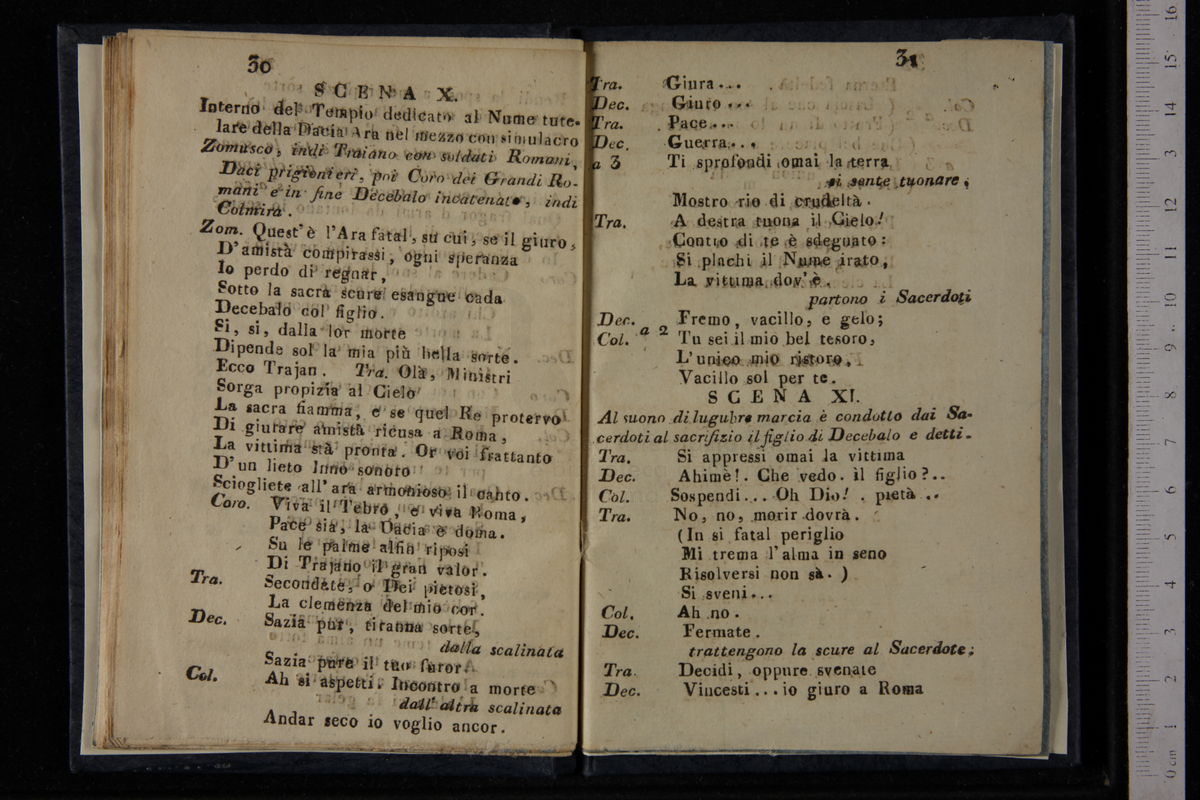 30
SCENA X.
Interno del Tempio dedicato al Nume tute-
lare della Dacia Ara nel mezzo con simulacro
Zomusco, indi Traiano con soldati Romani,
Daci prigionieri, poi Coro dei Grandi Ro-
mani e in fine Decebalo incatenato, indi
Colmira.
Zom. Quest'è l'Ara fatal, su cui, se il giuro,
D'amistà compirassi, ogni speranza
Io perdo di regnar,
Sotto la sacra scure esangue cada
Decebalo col figlio.
Si, si, dalla lor morte
Dipende sol la mia più bella sorte.
Ecco Trajan. Tra. Olà, Ministri
Sorga propizia al Cielo
La sacra fiamma, e se quel Re protervo
Di giurare amistà ricusa a Roma,
La vittima stà pronta. Or voi frattanto
D'un lieto Inno sonoro
Sciogliete all'ara armonioso il canto.
Coro. Viva il Tebro, e viva Roma,
Pace sia, la Dacia è doma.
Su le palme alfin riposi
Di Trajano il gran valor.
Tra. Secondate, o Dei pietosi,
La clemenza del mio cor.
Dec. Sazia pur, tiranna sorte,
dalla scalinata
Sazia pure il tuo furor.
Col. Ah si aspetti. Incontro a morte
dall'altra scalinata
Andar seco io voglio ancor.
31
Tra. Giura...
Dec. Giuro...
Tra. Pace...
Dec. Guerra...
a 3 Ti sprofondi omai la terra
si sente tuonare.
Mostro rio di crudeltà.
Tra. A destra tuona il Cielo!
Contro di te è sdegnato:
Si plachi il Nume irato,
La vittima dov'è.
partono i Sacerdoti
Dec. Fremo, vacillo, e gelo;
Col. a 2 Tu sei il mio bel tesoro,
L'unico mio ristoro,
Vacillo sol per te.
SCENA XI.
Al suono di lugubre marcia è condotto dai Sa-
cerdoti al sacrifizio il figlio di Decebalo e detti.
Tra. Si appressi omai la vittima
Dec. Ahimè! Che vedo. il figlio?..
Col. Sospendi... Oh Dio! . pietà ..
Tra. No, no, morir dovrà.
(In si fatal periglio
Mi trema l'alma in seno
Risolversi non sà.)
Si sveni...
Col. Ah no.
Dec. Fermate.
trattengono la scure al Sacerdote;
Tra. Decidi, oppure svenate
Dec. Vincesti...io giuro a Roma
0 cm 1 2 3 4 5 6 7 8 9 10 11 12 13 14 15 16